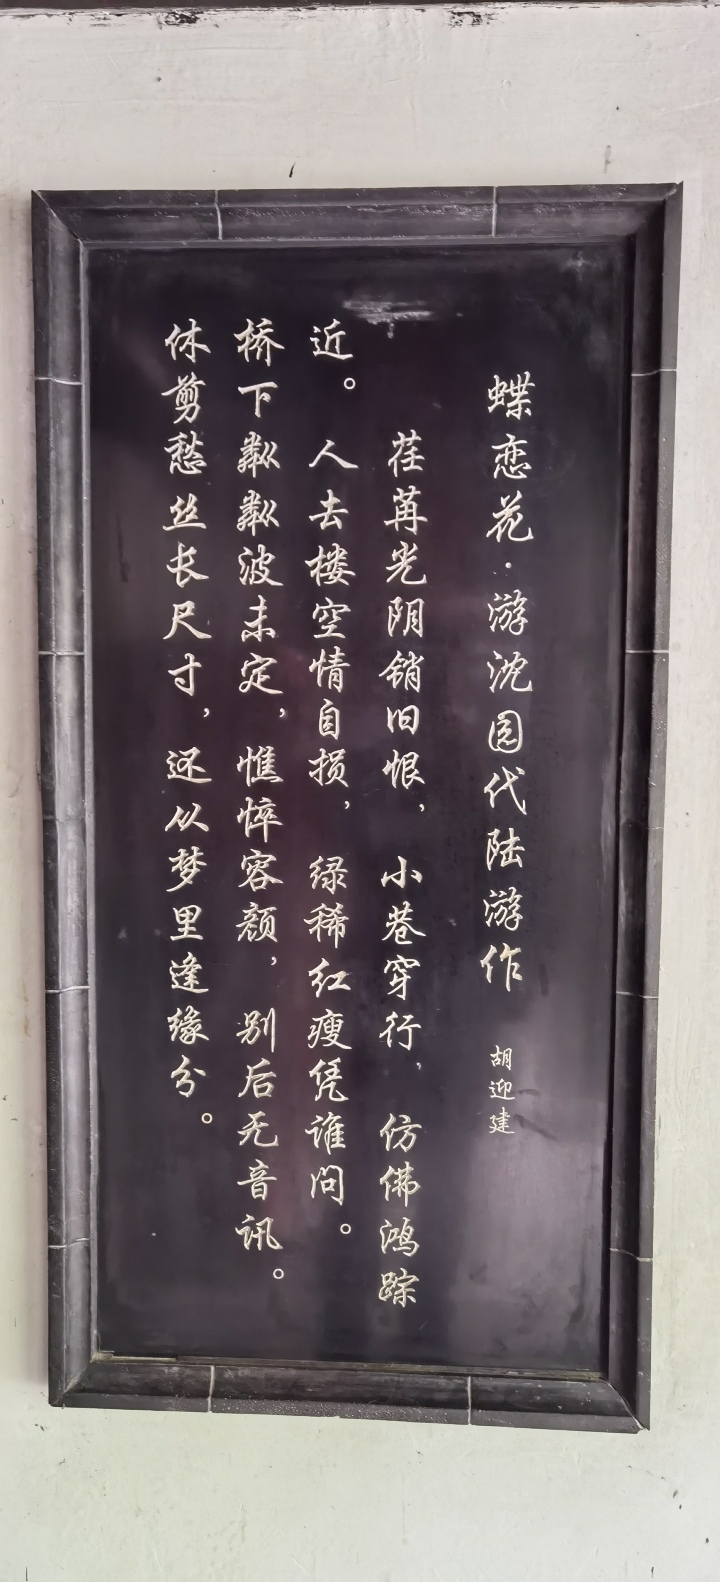 蝶恋花·游沈园代陆游作 胡迎建
荏苒光阴销旧恨，小巷穿行，仿佛鸿踪
近。人去楼空情自损，绿稀红瘦凭谁问。
桥下粼粼波未定，憔悴容颜，别后无音讯。
休剪愁丝长尺寸，还从梦里逢缘分。